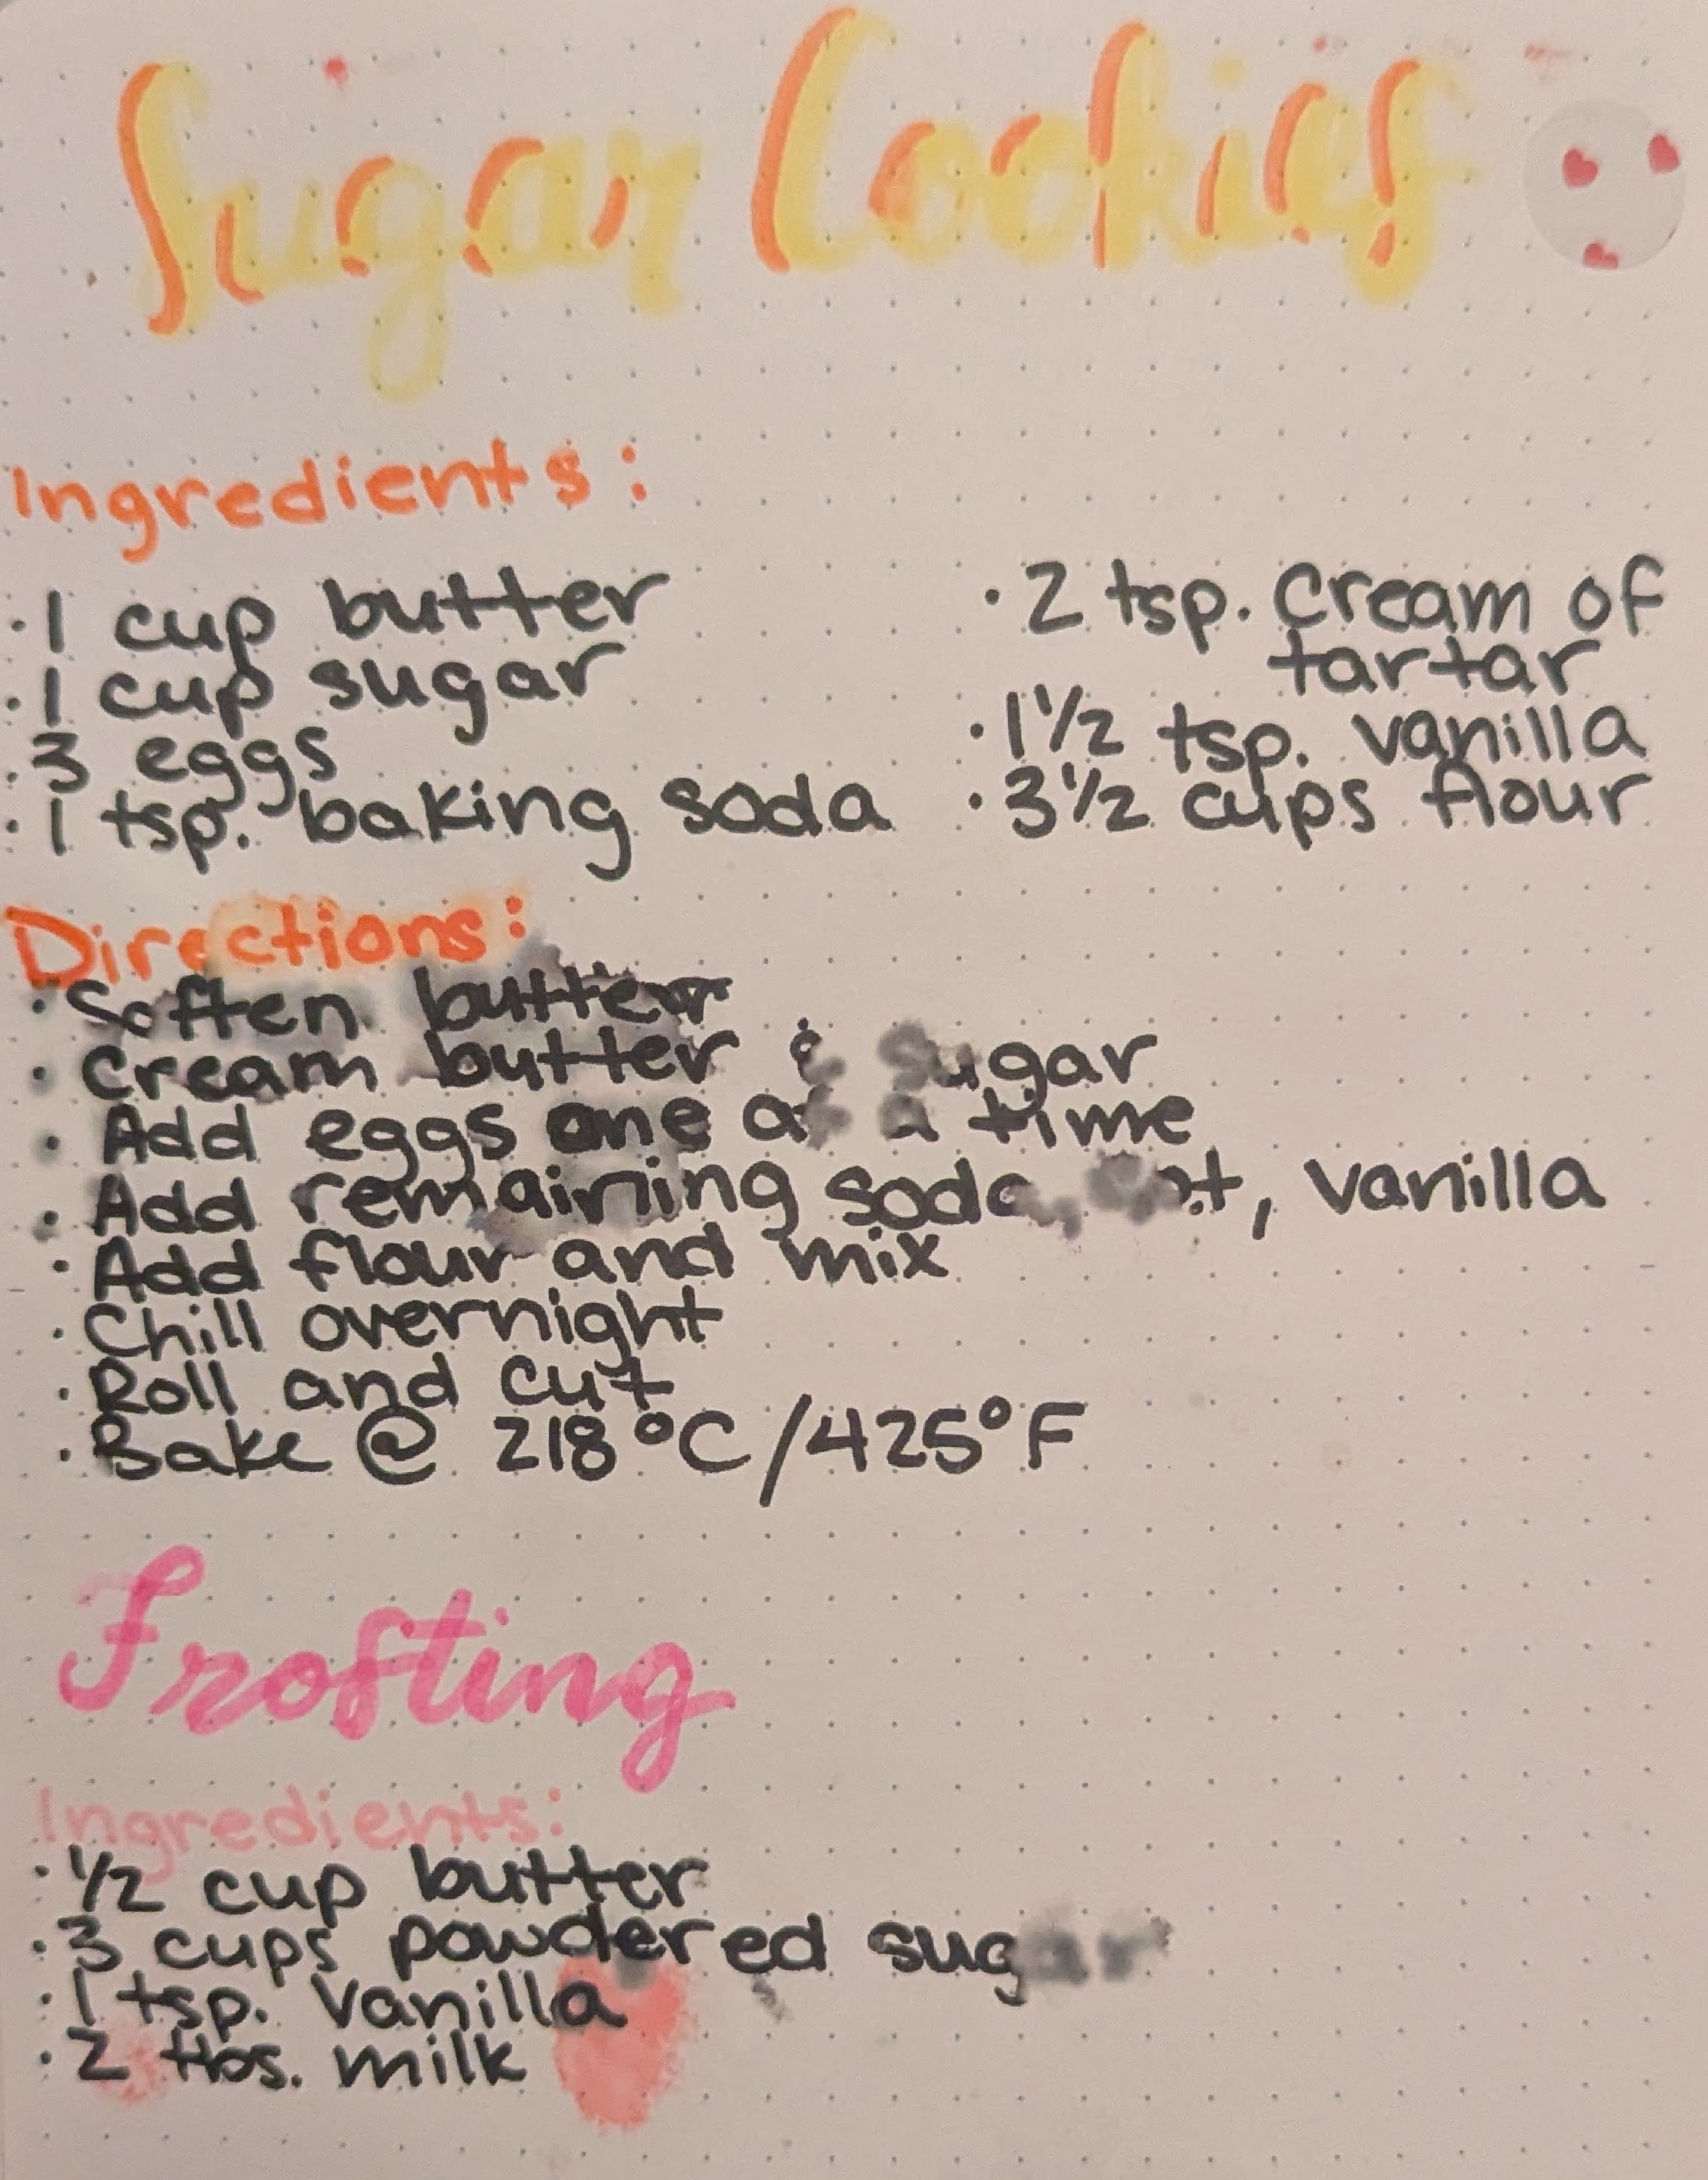 Sugar Cookies
Ingredients:
· 1 cup butter
· 1 cup sugar
· 3 eggs
· 1 tsp. baking soda
· 2 tsp. cream of
tartar
· 1 1/2 tsp. vanilla
· 3 1/2 cups flour
Directions:
· Soften butter
· Cream butter & sugar
· Add eggs one at a time
· Add remaining soda, , vanilla
· Add flour and mix
· Chill overnight
· Roll and cut
· Bake @ 218°C/425°F
Frosting
Ingredients:
· 1/2 cup butter
· 3 cups powdered sugar
· 1 tsp. vanilla
· 2 tbs. milk